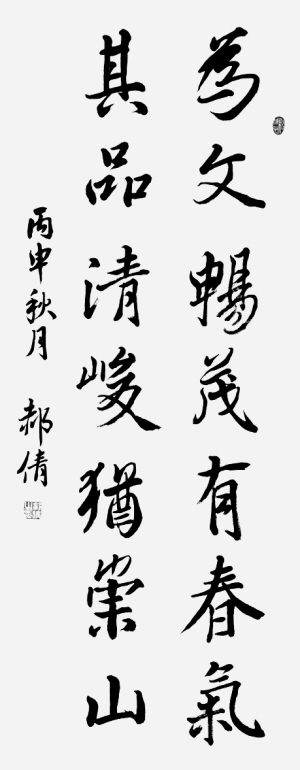 為文暢茂有春氣
其品清峻猶崇山
丙申秋月 郝倩